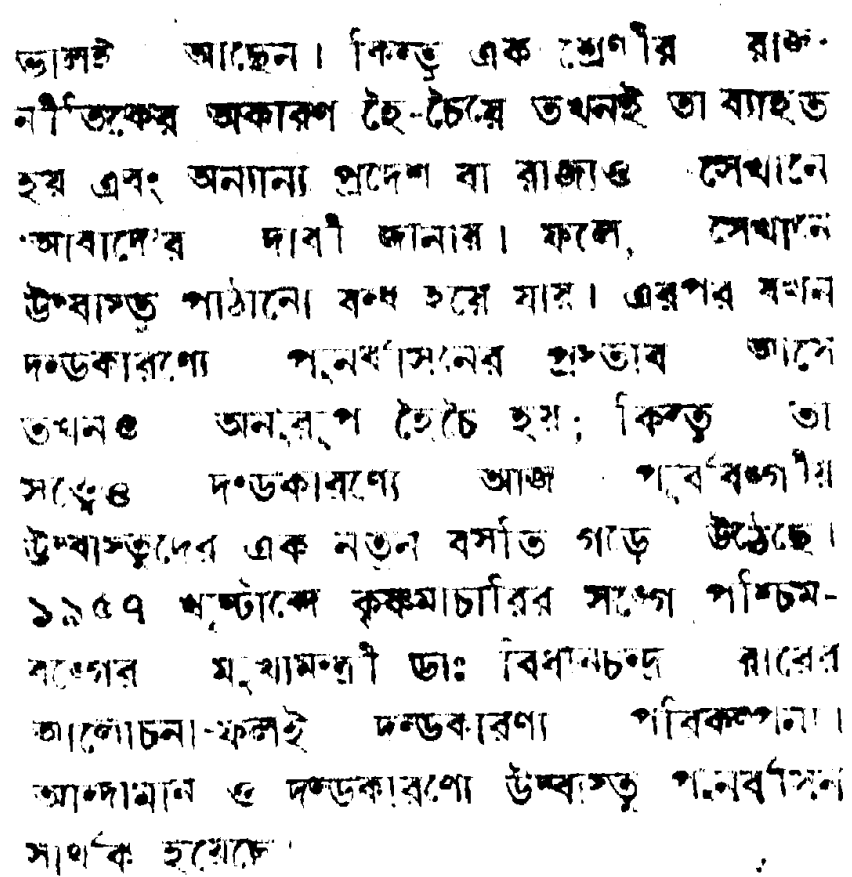 ভালই আছেন। কিন্তু এক শ্রেণীর রাজ-
নীতিকের অকারণ হৈ-চৈয়ে তখনই তা ব্যাহত
হয় এবং অন্যান্য প্রদেশ বা রাজ্যও সেখানে
আবাদের দাবী জানায়। ফলে, সেখানে
উদ্বাস্তু পাঠানো বন্ধ হয়ে যায়। এরপর যখন
দণ্ডকারণ্যে পুনর্বাসনের প্রস্তাব আসে
তখনও অনুরূপ হৈচৈ হয়; কিন্তু তা
সত্ত্বেও দণ্ডকারণ্যে আজ পূর্ববঙ্গীয়
উদ্বাস্তুদের এক নতুন বসতি গড়ে উঠেছে।
১৯৫৭ খৃষ্টাব্দে কৃষ্ণমাচারির সঙ্গে পশ্চিম-
বঙ্গের মুখ্যমন্ত্রী ডাঃ বিধানচন্দ্র রায়ের
আলোচনা-ফলই দন্ডকারণ্য পরিকল্পনা।
আন্দামান ও দন্ডকারণ্যে উদ্বাস্তু পুনর্বাসন
সার্থক হয়েছে।